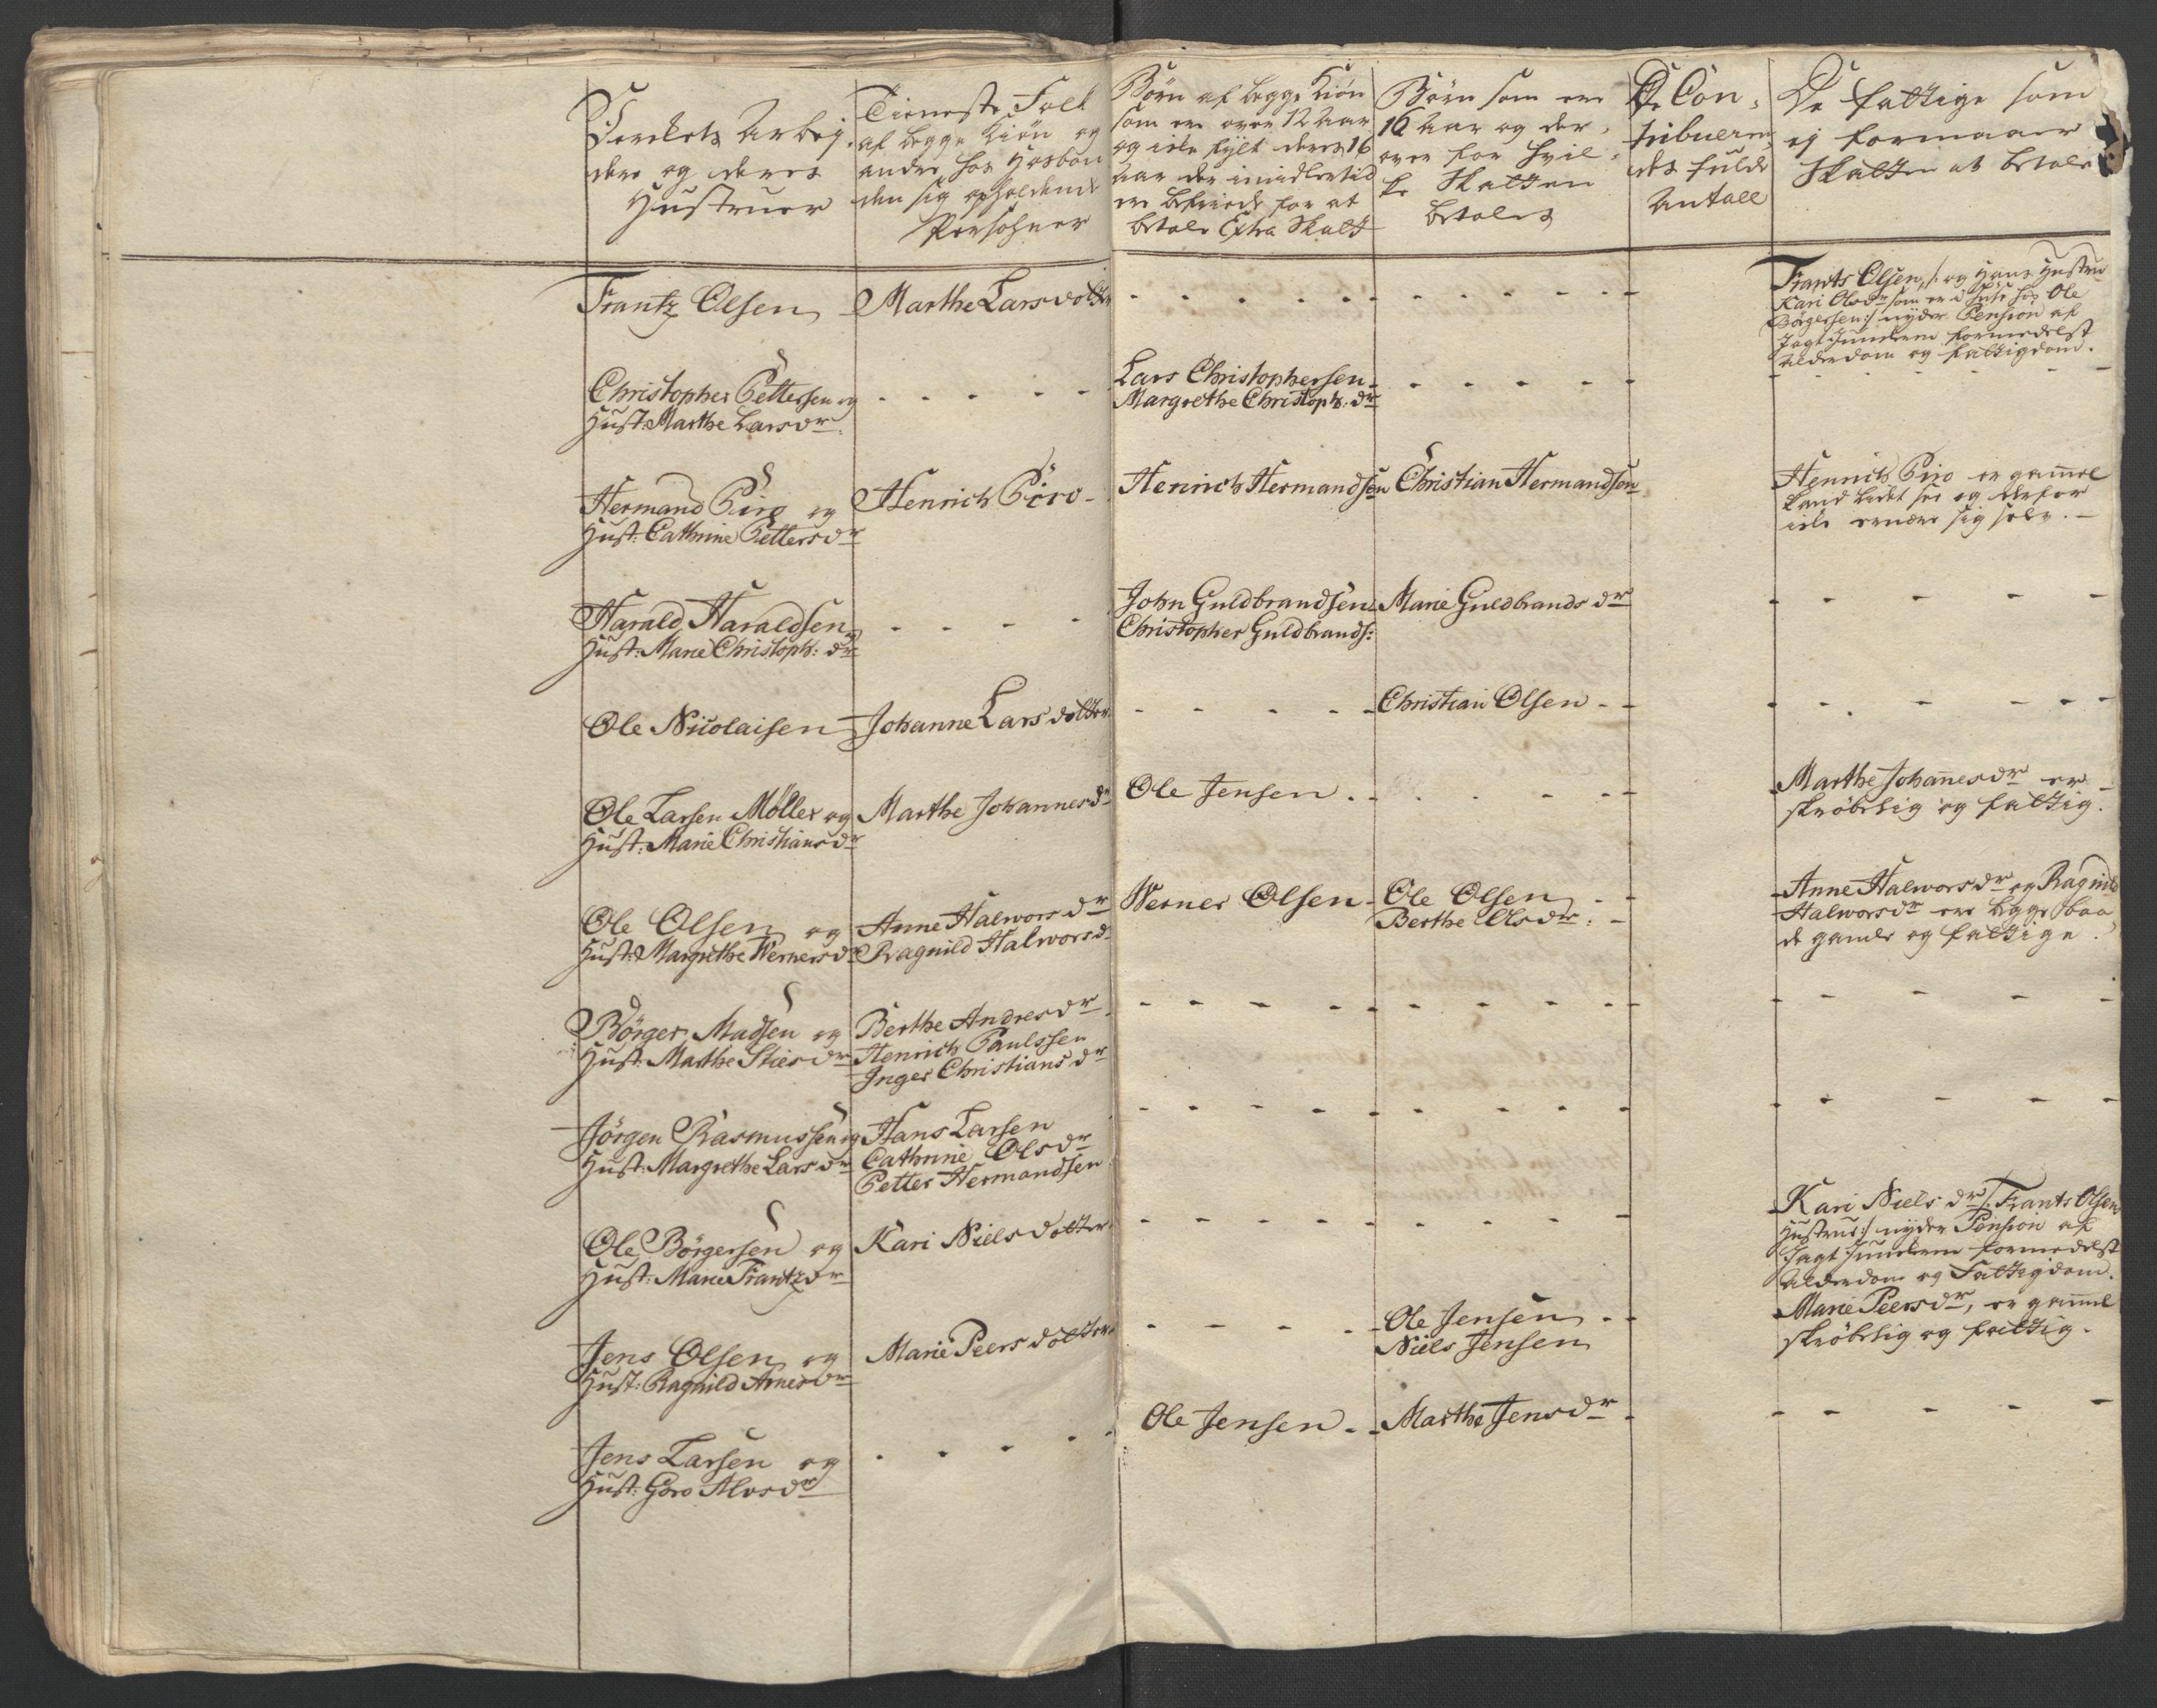 Verckets Arbej-
dere og deres
Hustruer
Tieneste Folk
af begge Kiøn og
andre hos Hosbon
den sig opholdende
Persohner
Børn af begge Kiøn
som ere over 12 Aar
og icke fylt deres 16
Aar der imidlertid
ere befriede for at
betale Extra Skatt
Børn som ere
16 Aar og der-
over for hvil-
ke Skatten
betales
De Con-
tribueren-
des fulde
Antall
De fattige som
ej formaaer
Skatten at betale
Frantz Olsen
Marthe Larsdotter
Frants Olsen, /: og hans Hustru
Kari Olsdr som er i huus hos Ole
Börgersen:/ nyder Pension af
Jagt Junckeren formedelst
Alderdom og fattigdom.
Christopher Pettersen og
Hust: Marthe Larsdr
Lars Christophersen
Margrethe Christoph: dr
Hermand Piro og
Hust: Cathrine Pettersdr
Henrich Piro
Henrich Hermandsen
Christian Hermandsen
Henrich Piro er gammel
kand lidet see og derfor
icke ernære sig selv.
Harald Haraldsen og
Hust: Marie Christoph: dr
John Guldbrandsen
Christopher Guldbrands:
Marie Guldbrands dr
Ole Nicolaisen
Johanne Larsdotter
Christian Olsen
Ole Larsen Möller og
Hust: Marie Christiansdr
Marthe Johannesdr
Ole Jensen
Marthe Johannesdr er
skröbelig og fattig.
Ole Olsen og
Hust: Margrethe Wernersdr
Anne Halworsdr
Ragnild Halworsd
Werner Olsen
Ole Olsen
Berthe Olsdr:
Anne Halworsdr og Ragnild
Halworsdr ere begge baa
de gamle og fattige.
Börger Madsen og
Hust: Marthe Stiesdr
Berthe Andresdr
Henrich Paulssen
Inger Christiansdr
Jörgen Rasmussen og
Hust: Margrethe Larsdr
Hans Larsen
Cathrine Olsdr
Petter Hermandsen
Ole Börgersen og
Hust: Marie Frantzdr
Kari Nielsdotter
Kari Nielsdr /: Frants Olsens
Hustrue:/ nyder Pension af
Jagt Junckeren formedelst
Alderdom og Fattigdom.
Jens Olsen og
Hust: Ragnild Arnesdr
Marie Peersdotter
Ole Jensen
Niels Jensen
Marie Peersdr, er gammel
skröbelig og fattig.
Jens Larsen og
Hust: Goro Alvsdr
Ole Jensen
Marthe Jensdr